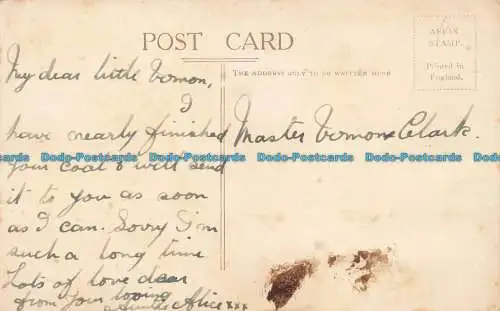 POST CARD
AFFIX
STAMP.
Printed in
England.
THE ADDRESS ONLY TO BE WRITTEN HERE
My dear little Vernon,
I
have nearly finished
your coat & will send
it to you as soon
as I can. Sorry I'm
such a long time
Lots of love dear
from your loving
Auntie Alice xxx
Master Vernon Clark.
Dodo-Postcards Dodo-Postcards Dodo-Postcards Dodo-Postcards Dodo-Postcards Dodo-Postcards